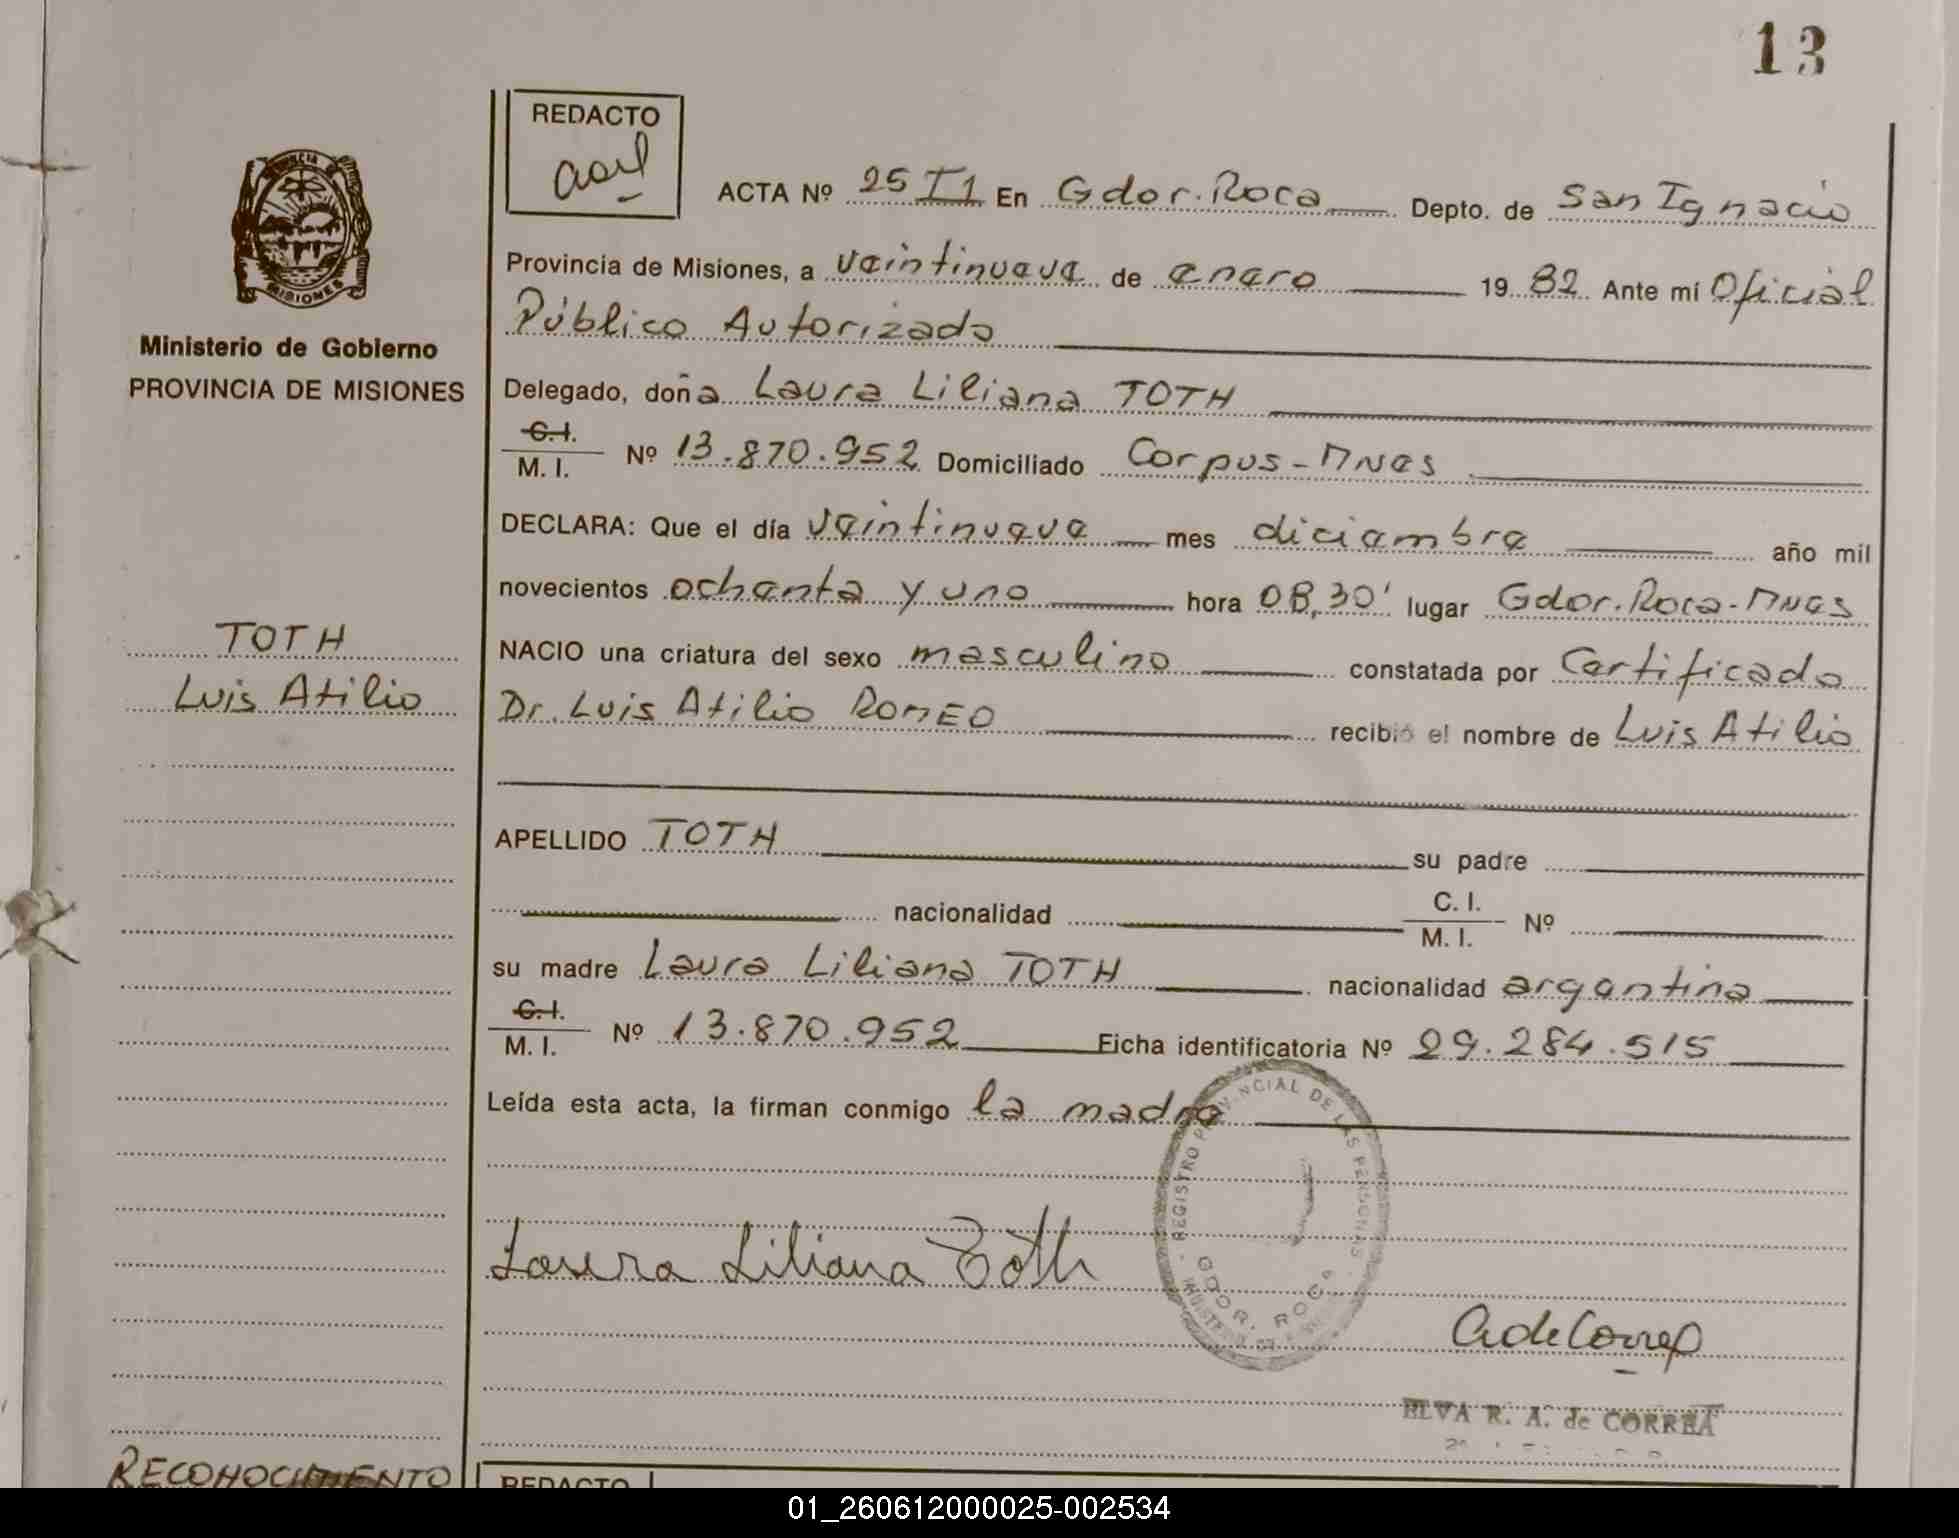 13
REDACTO
ACTA Nº 25 T1 En Gdor. Roca Depto. de San Ignacio
Provincia de Misiones, a veintinueve de enero 1982 Ante mi Oficial
Público Autorizado
Ministerio de Gobierno
PROVINCIA DE MISIONES
Delegado, doña Laura Liliana TOTH
C.I.
M. I. Nº 13.870.952 Domiciliado Corpus-Mnes
DECLARA: Que el día veintinueve mes diciembre año mil
novecientos ochenta y uno hora 08,30' lugar Gdor. Roca-Mnes
TOTH
Luis Atilio
NACIO una criatura del sexo masculino constatada por Certificado
Dr. Luis Atilio ROMEO recibió el nombre de Luis Atilio
APELLIDO TOTH su padre
nacionalidad C. I.
M. I. Nº
su madre Laura Liliana TOTH nacionalidad argentina
C.I.
M. I. Nº 13.870.952 Ficha identificatoria Nº 29.284.515
Leída esta acta, la firman conmigo la madre
REGISTRO PROVINCIAL DE LAS PERSONAS
GDOR. ROCA
Laura Liliana Toth
AdeCorrea
ELVA R. A. de CORREA
RECONOCIMIENTO
REDACTO
01_260612000025-002534